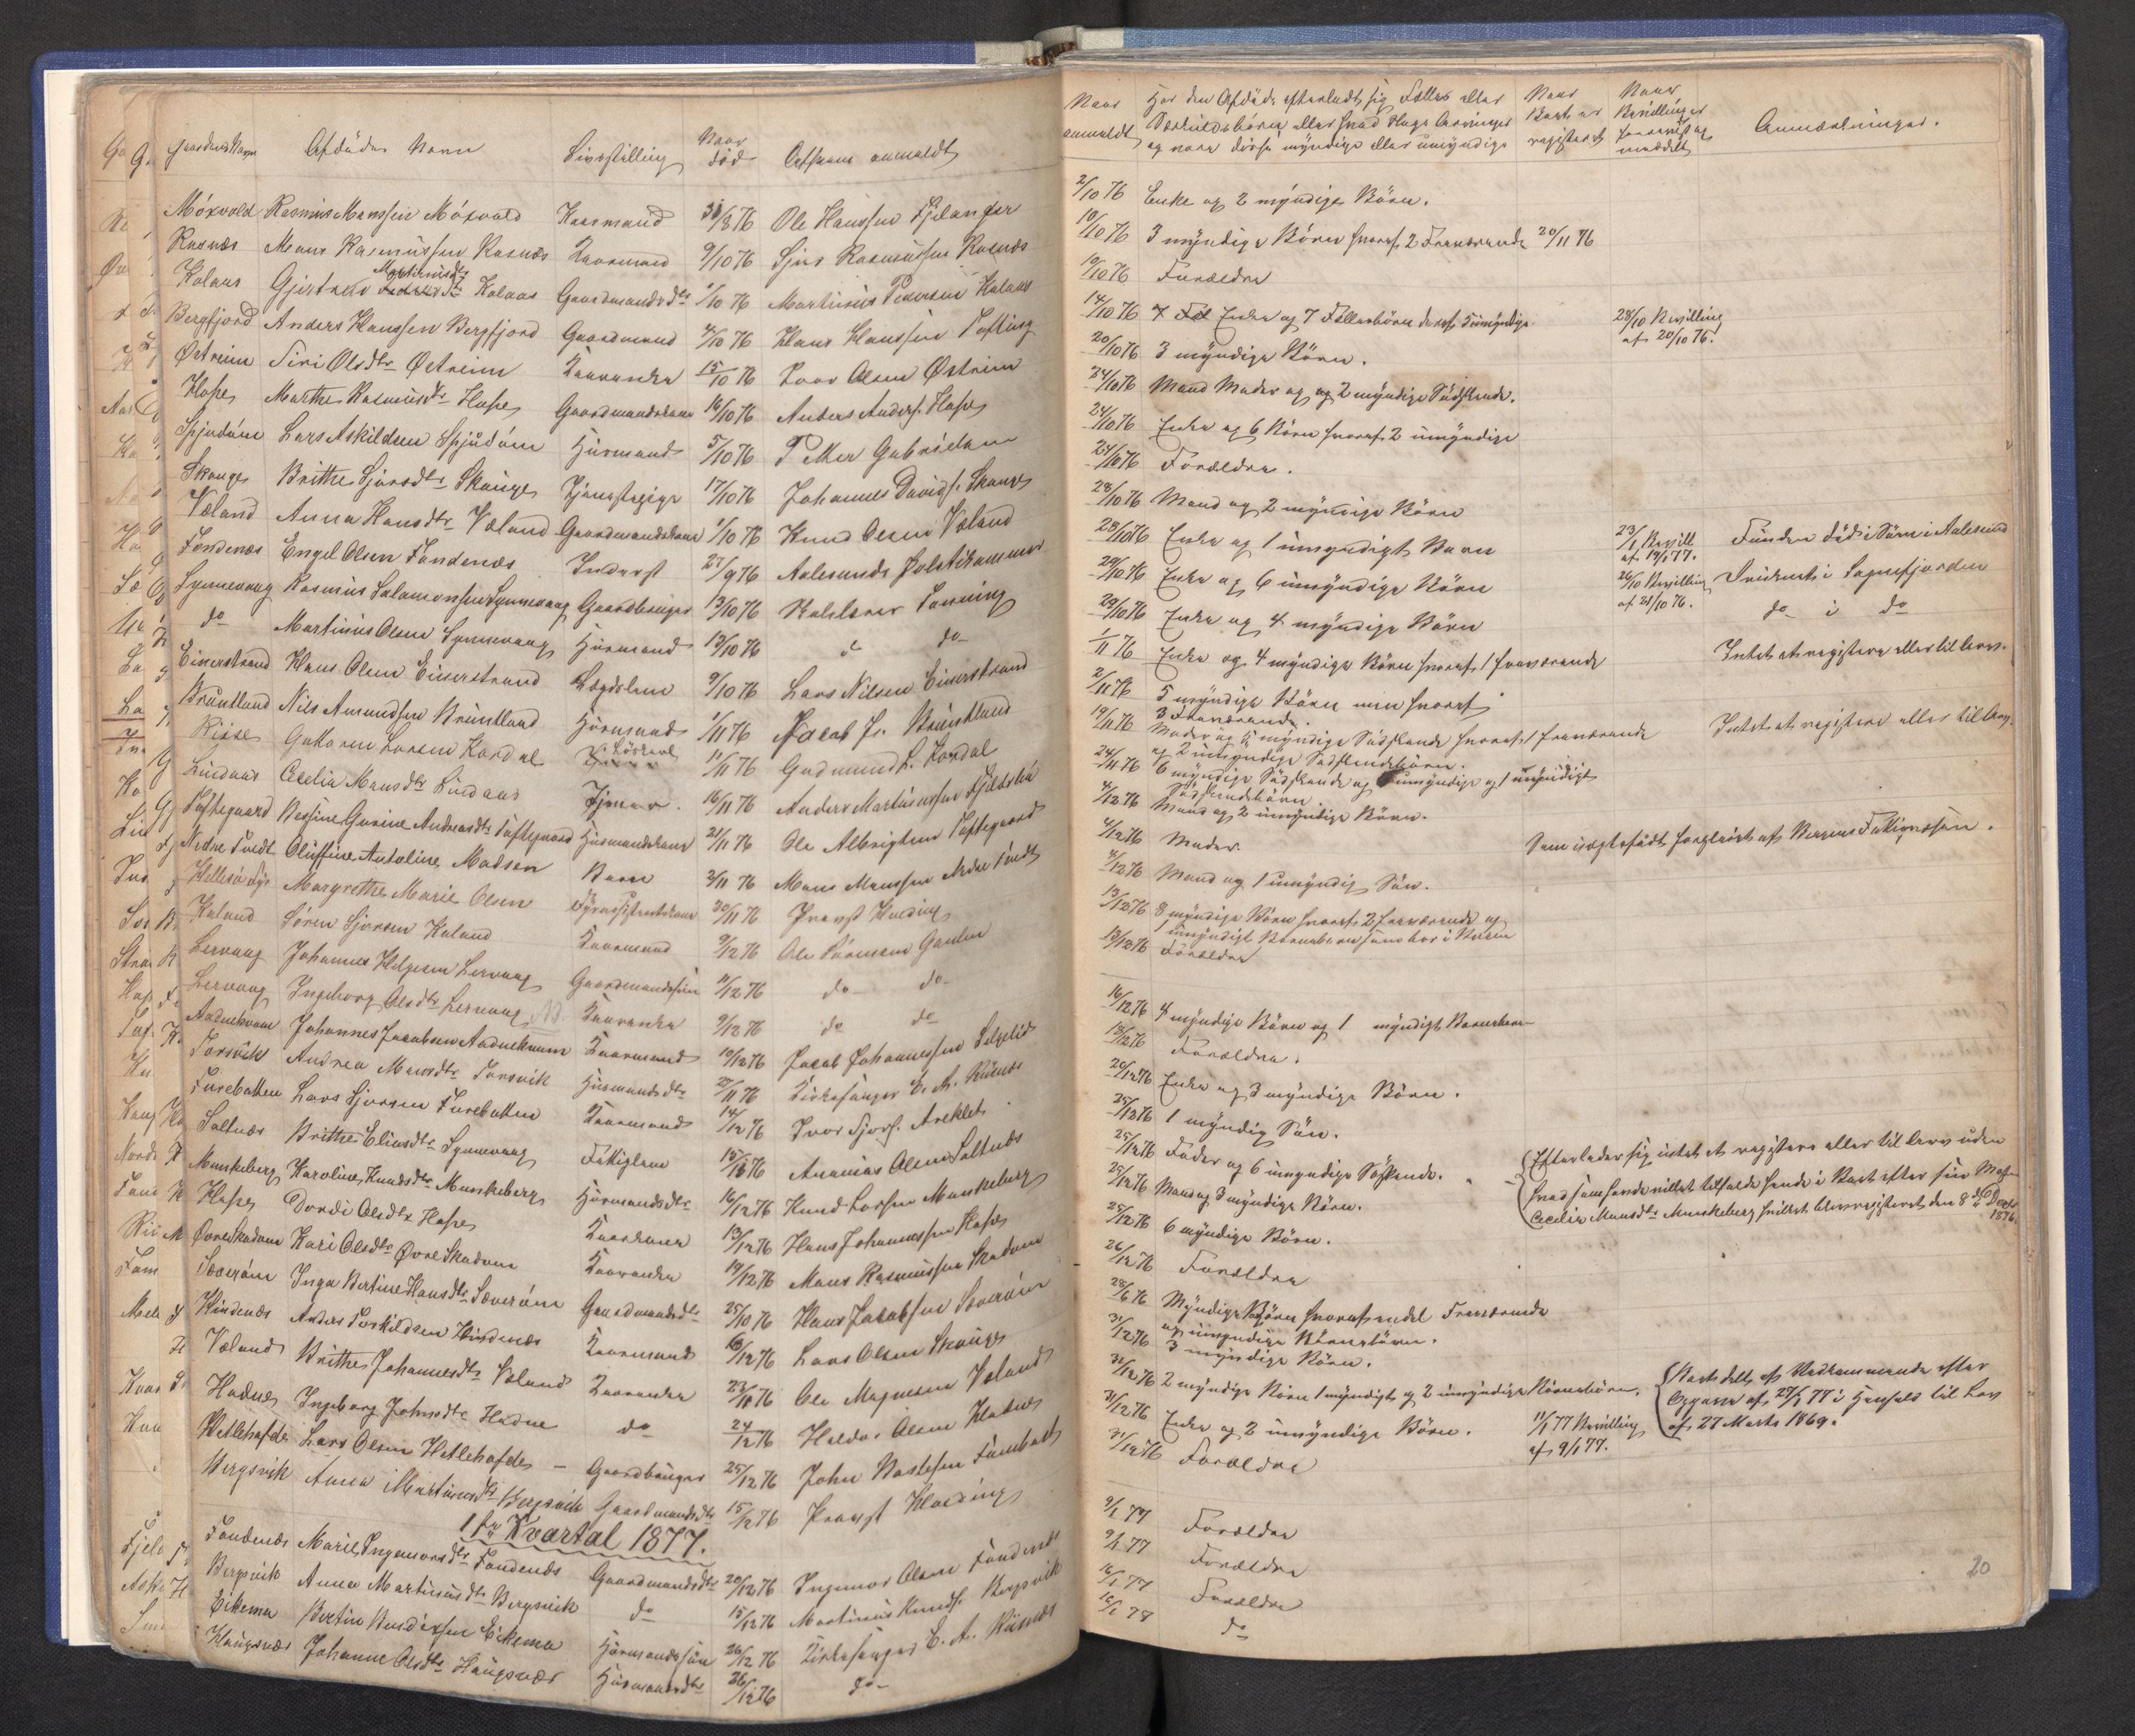 Gaardens Navn Afdødes Navn Livsstilling Naar død Af hvem anmeldt
Møxvold Rasmus Monssen Møxvold Kaarmand 31/8 76 Ole Hanssen Fjelanger
Risnæs Mons Rasmussen Risnæs Kaarmand 9/10 76 Sjur Rasmussen Risnæs
Kalaas Gjertrud Martinusdtr Kalaas Gaardmandsdtr 1/10 76 Martinus Pedersen Kalaas
Bergfjord Anders Hanssen Bergfjord Gaardmand 4/10 76 Hans Hanssen Tofting
Østreim Siri Olsdtr Østreim Kaarenke 15/10 76 Ivar Olsen Østreim
Hope Marthe Rasmusdtr Hope Gaardmandskone 16/10 76 Anders Anders. Hope
Spjudøen Lars Askildsen Spjudøen Husmand 5/10 76 Petter Gabrielsen
Skauge Brithe Sjursdtr Skauge Tjenestepige 17/10 76 Johannes Davids. Skauge
Væland Anna Hansdtr Væland Gaardmandskone 1/10 76 Knud Olsen Væland
Fondenæs Engel Olsen Fondenæs Inderst 27/9 76 Aalesunds Politikammer
Synnevaag Rasmus Salamonsen Synnevaag Gaardbruger 13/10 76
do Martinus Olsen Synnevaag Husmand 13/10 76 do
Einerstrand Hans Olsen Einerstrand Lægdslem 9/10 76 Lars Nilsen Einerstrand
Bruntland Nils Amundsen Bruntland Husmand 1/11 76 Jacob Js. Bruntland
Risse Guttorm Larsen Kordal Løskarl 11/11 76 Gudmund L. Kordal
Lindaas Cecilia Monsdtr Lindaas Tjener 16/11 76 Anders Martinussen
Toftegaard Bessine Gurine Andreasdtr Toftegaard Husmandskone 21/11 76 Ole Albrigtsen Toftegaard
Nedre Tvedt Oluffine Antoline Madsen Barn 2/11 76 Mons Monssen Nedre Tvedt
Hellesø Fyr Margrethe Marie Olsen Fyrassistentskone 30/11 76 Provst Harding
Kaland Søren Sjursen Kaland Kaarmand 9/12 76 Ole Sørensen
Lervaag Johannes Helgesen Lervaag Gaardmandssøn 11/12 76 do do
Lervaag Ingeborg Olsdtr Lervaag Kaarenke 9/12 76 do do
Aadnekvam Johannes Jacobsen Aadnekvam Kaarmand 10/12 76 Jacob Johannessen
Torsvik Andrea Monsdtr Torsvik Husmandsdtr 27/11 76 Kirkesanger E. A. Risnæs
Furebotten Lars Sjursen Furebotten Kaarmand 14/12 76 Ivar Sjurs.
Saltnæs Brithe Eliasdtr Synnevaag Fattiglem 15/12 76 Ananias Olsen Saltnæs
Munkeberg Karoline Knudsdtr Munkeberg Husmandsdtr 16/12 76 Knud Larsen Munkeberg
Hope Dordi Olsdtr Hope Kaarkone 13/12 76 Hans Johannessen Hope
Øvre Skodven Kari Olsdtr Øvre Skodven Kaarenke 19/12 76 Mons Rasmussen Skodven
Sæverøen Inga Bertine Hansdtr Sæverøen Gaardmandsdtr 25/10 76 Hans Jacobsen Sæverøen
Hindenæs Anders Torkildsen Hindenæs Kaarmand 6/12 76 Lars Olsen Skauge
Væland Brithe Johannesdtr Væland Kaarenke 23/12 76 Ole Magnesen Væland
Hodne Ingeborg Johnsdtr Hodne do 24/12 76 Haldor Olsen Hodne
Hetlehofde Lars Olsen Hetlehofde – Gaardbruger 25/12 76 John
Bergsvik Anna Martinusdtr Bergsvik Gaardmandsdtr 15/12 76 Provst Harding
1ste Kvartal 1877.
Fondenæs Marie Ingemorsdtr Fondenæs Gaardmandsdtr 20/12 76 Ingemor Olsen Fondenæs
Bergsvik Anna Martinusdtr Bergsvik do 15/12 76 Martinus Knuds. Bergsvik
Eikemo Bertin Eikemo Husmandssøn 26/12 76 Kirkesanger E. A. Risnæs
Haugsvær Johanne Olsdtr Haugsvær Husmandsdtr 26/12 76 do
Naar anmeldt Har den Afdøde efterladt sig Fælles eller Særkuldsbørn eller hvad Slags Arvinger og ere disse myndige eller umyndige Naar Boet er registeret Naar Bevillinger meddelt Anmærkninger.
2/10 76 Enke og 2 myndige Børn.
10/10 76 3 myndige Børn hvoraf 2 Fraværende 20/11 76
10/10 76 Forældre
14/10 76 Enke og 7 Fællesbørn deraf 5 umyndige 28/10 Bevilling af 20/10 76.
20/10 76 3 myndige Børn.
24/10 76 Mand Moder og 2 myndige Sødskende.
24/10 76 Enke og 6 Børn hvoraf 2 umyndige
24/10 76 Forældre.
28/10 76 Mand og 2 myndige Børn
28/10 76 Enke og 1 umyndigt Barn 23/1 Bevill. af 19/1 77. Funden død i Søen i Aalesund
29/10 76 Enke og 6 umyndige Børn 26/10 Bevilling af 21/10 76. Druknet i Sognefjorden
29/10 76 Enke og 4 myndige Børn do i do
1/11 76 Enke og 4 myndige Børn hvoraf 1 fraværende Intet at registere eller til Arv.
2/11 76 5 myndige Børn men hvoraf 3 Fraværende.
19/11 76 Moder og 5 myndige Sødskende hvoraf 1 fraværende og 2 umyndige Sødskendebørn. Intet at registere eller til Arv.
24/11 76 6 myndige Sødskende og umyndige og 1 myndigt Sødskendebørn.
4/12 76 Mand og 2 umyndige Børn.
4/12 76 Moder. Som uægtefødt forpleiet af Bergens Fattigvæsen.
4/12 76 Mand og 1 umyndig Søn.
13/12 76 8 myndige Børn hvoraf 2 fraværende og 1 umyndigt Barnebarn som bor i Bergen
13/12 76 Forældre
16/12 76 4 myndige Børn og 1 myndigt Barnebarn
18/12 76 Forældre.
20/12 76 Enke og 3 myndige Børn.
25/12 76 1 myndig Søn.
25/12 76 Fader og 6 umyndige Søskende. Efterlader sig intet at registere eller til Arv uden hvad som henderillet tilfalde hende i Boet efter sin Moder Cecilia Monsdtr Munkeberg hvilket blev registeret den 8de Decbr 1876.
25/12 76 Mand og 3 myndige Børn.
25/12 76 6 myndige Børn.
26/12 76 Forældre
28/12 76 Myndige Børn hvoraf endel Fraværende og umyndige Børnebørn.
31/12 76 3 myndige Børn.
31/12 76 2 myndige Børn 1 myndigt og 2 umyndige Børnebørn. Boet delt af Vedkommende efter Opgave af 27/1 77 i Henhold til Lov af 27 Marts 1869.
31/12 76 Enke og 2 umyndige Børn. 11/1 77 Bevilling af 9/1 77.
31/12 76 Forældre
9/1 77 Forældre
9/1 77 Forældre
16/1 77 Forældre
16/1 77 do
20